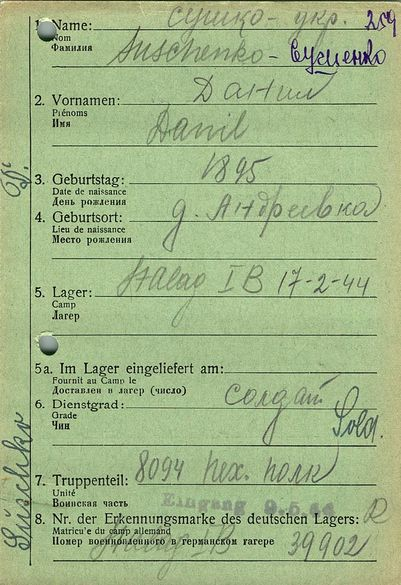 259
1. Name: сушко - укр.
Nom
Фамилия
Suschenko - Сущенко
2. Vornamen: Данил
Prénoms
Имя
Danil
3. Geburtstag: 1895
Date de naissance
День рождения
4. Geburtsort: д. Андреевка
Lieu de naissance
Место рождения
Stalag IB 17-2-44
5. Lager:
Camp
Лагерь
5a. Im Lager eingeliefert am:
Fournit au Camp le
Доставлен в лагерь (число)
6. Dienstgrad: солдат
Grade
Чин
Sold.
7. Truppenteil: 8094 пех. полк
Unité
Воинская часть
Eingang
8. Nr. der Erkennungsmarke des deutschen Lagers:
Matricu'e du camp allemand
Номер военнопленного в германском лагере
Stalag IB 39902
Suschko